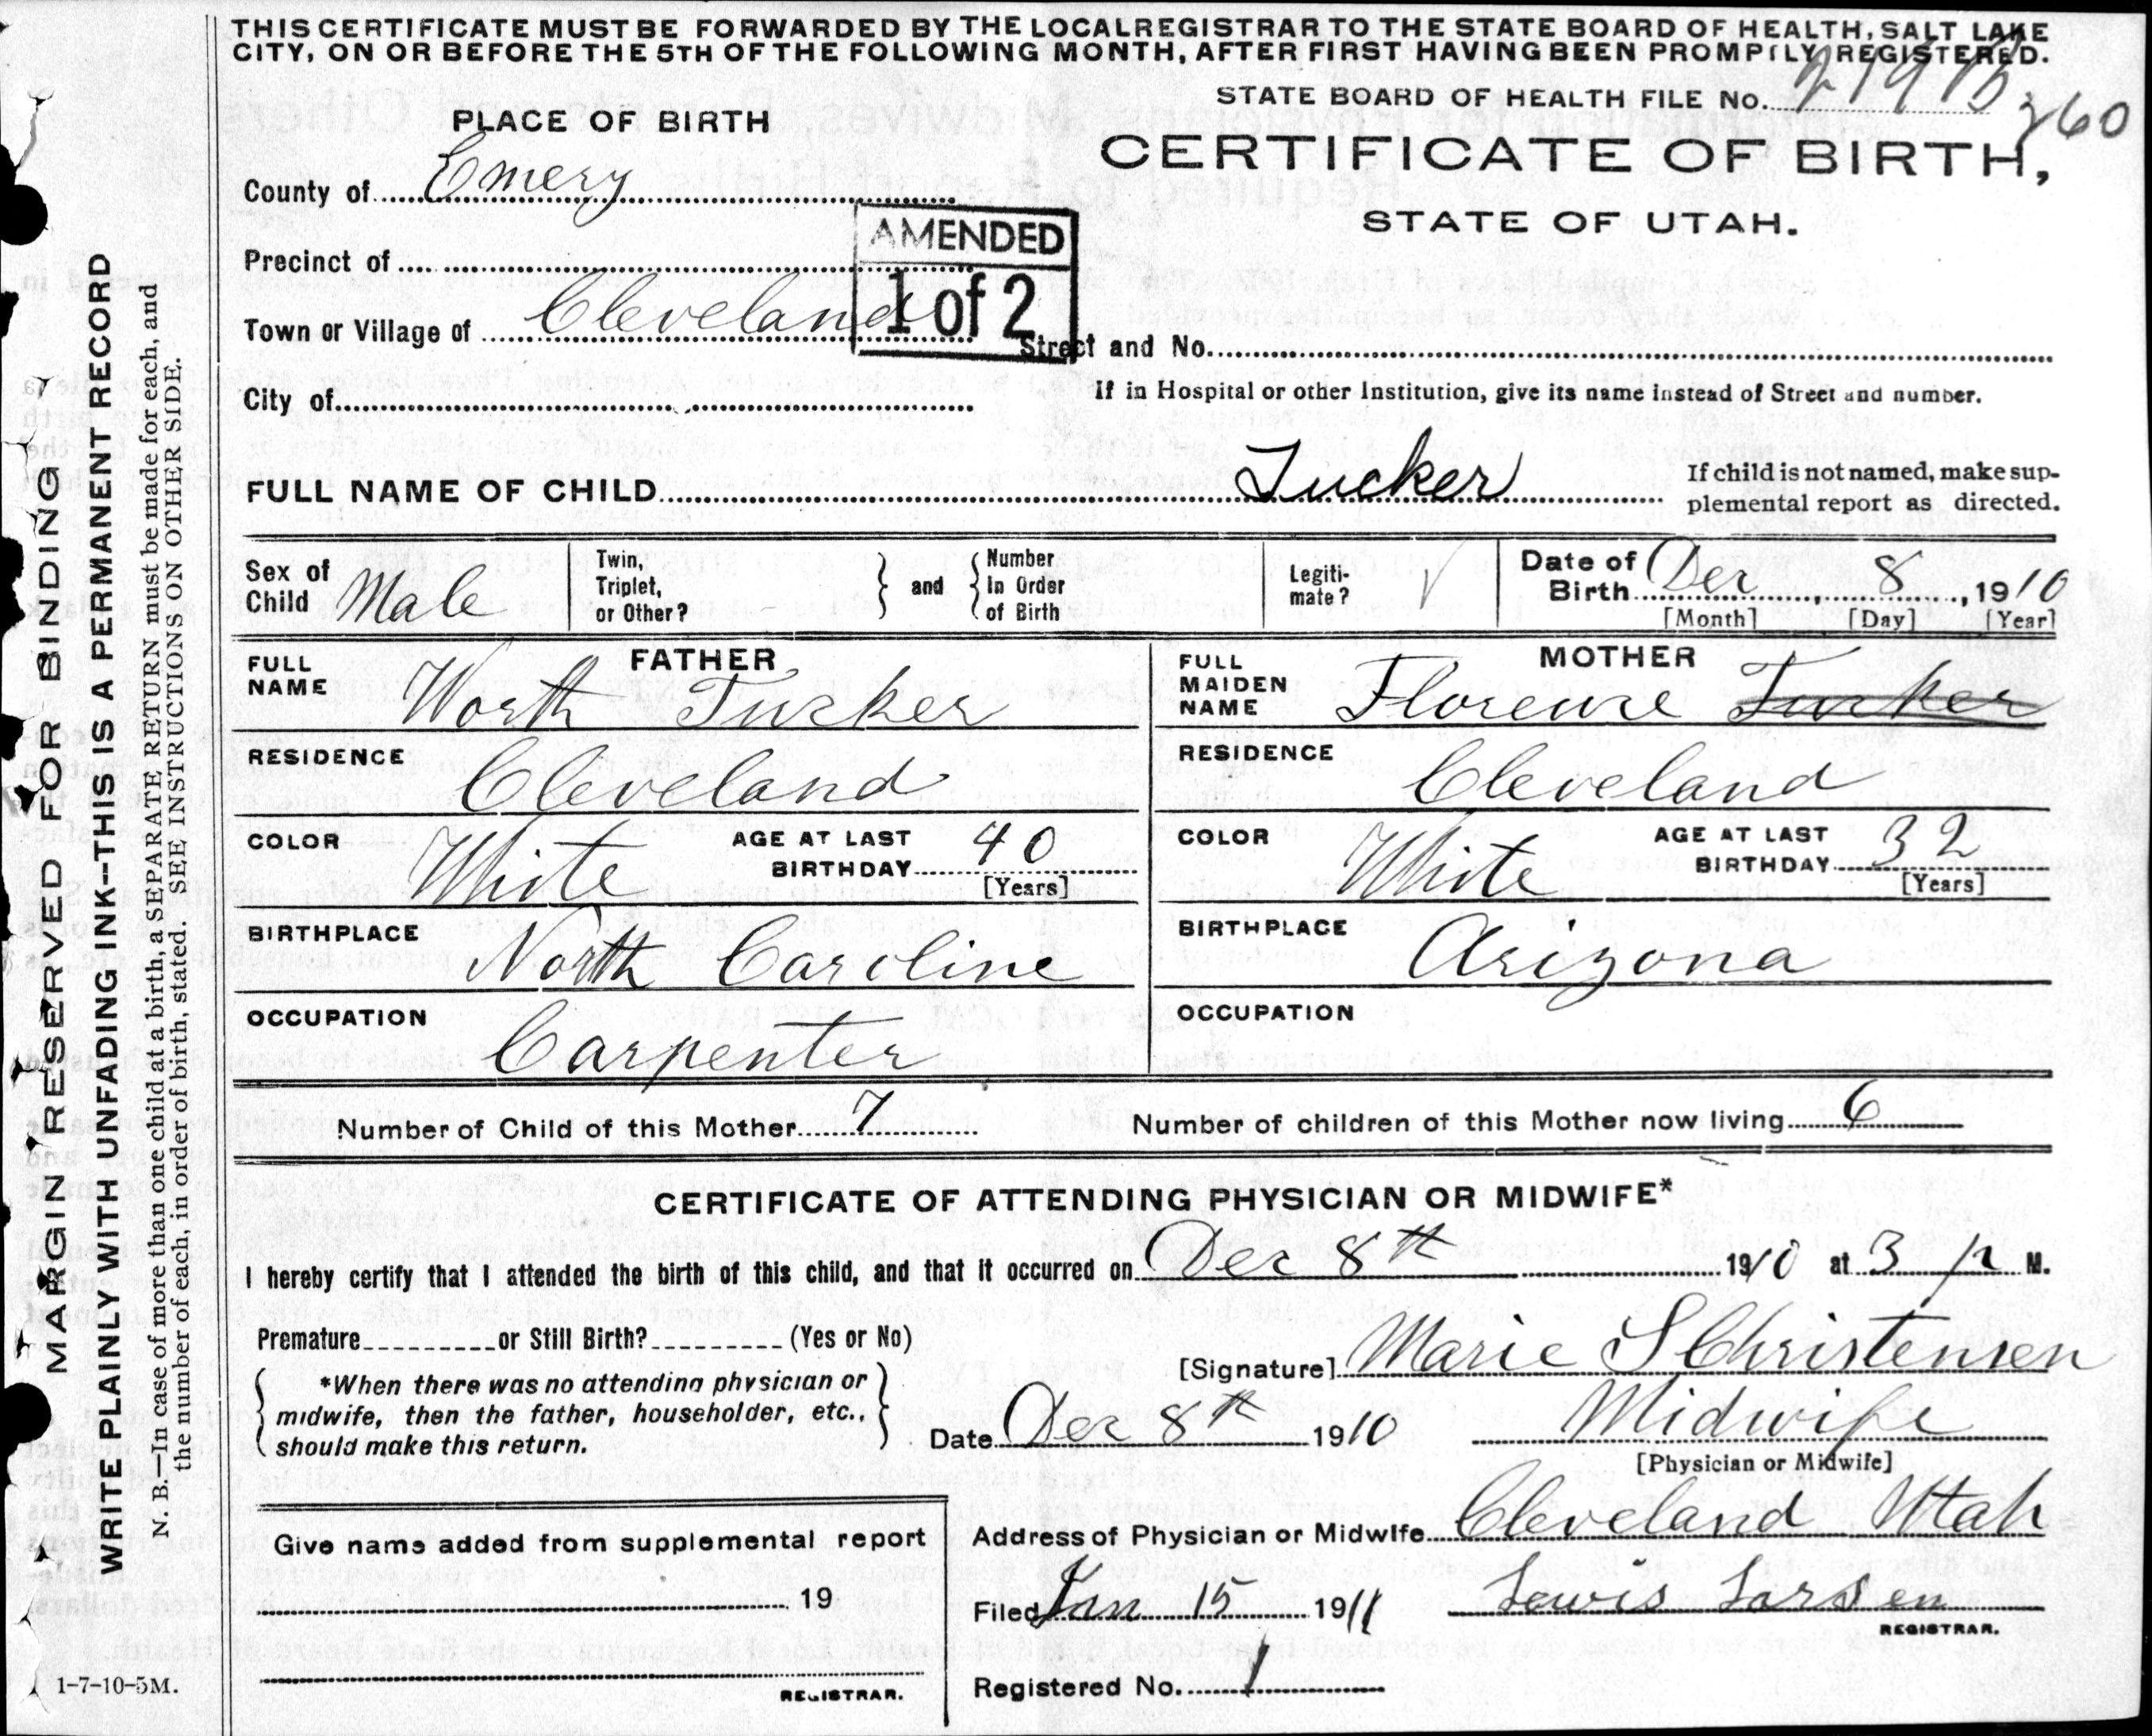 THIS CERTIFICATE MUST BE FORWARDED BY THE LOCAL REGISTRAR TO THE STATE BOARD OF HEALTH, SALT LAKE
CITY, ON OR BEFORE THE 5TH OF THE FOLLOWING MONTH, AFTER FIRST HAVING BEEN PROMPTLY REGISTERED.
STATE BOARD OF HEALTH FILE No.
260
PLACE OF BIRTH
CERTIFICATE OF BIRTH,
STATE OF UTAH.
County of Emery
AMENDED
1 of 2
Precinct of
Town or Village of Cleveland
Street and No.
City of
If in Hospital or other Institution, give its name instead of Street and number.
FULL NAME OF CHILD Tucker
If child is not named, make sup-
plemental report as directed.
Sex of Child Male
Twin, Triplet, or Other?
and
Number in Order of Birth
Legiti-mate? √
Date of Birth Dec 8, 1910
[Month] [Day] [Year]
FATHER
FULL NAME Worth Tucker
RESIDENCE Cleveland
COLOR White AGE AT LAST BIRTHDAY 40
[Years]
BIRTHPLACE North Caroline
OCCUPATION Carpenter
MOTHER
FULL MAIDEN NAME Florence Tucker
RESIDENCE Cleveland
COLOR White AGE AT LAST BIRTHDAY 32
[Years]
BIRTHPLACE Arizona
OCCUPATION
Number of Child of this Mother 7 Number of children of this Mother now living 6
CERTIFICATE OF ATTENDING PHYSICIAN OR MIDWIFE*
I hereby certify that I attended the birth of this child, and that it occurred on Dec 8th 1910 at 3 P M.
Premature or Still Birth? (Yes or No)
[Signature] Marie S Christensen
*When there was no attending physician or
midwife, then the father, householder, etc.,
should make this return.
Date Dec 8th 1910 Midwife
[Physician or Midwife]
Give name added from supplemental report
19
REGISTRAR.
Address of Physician or Midwife Cleveland Utah
Filed Jan 15 1911 Lewis Larsen
REGISTRAR.
Registered No. 1
MARGIN RESERVED FOR BINDING
WRITE PLAINLY WITH UNFADING INK--THIS IS A PERMANENT RECORD
N. B.—In case of more than one child at a birth, a SEPARATE RETURN must be made for each, and
the number of each, in order of birth, stated. SEE INSTRUCTIONS ON OTHER SIDE.
1-7-10-5M.